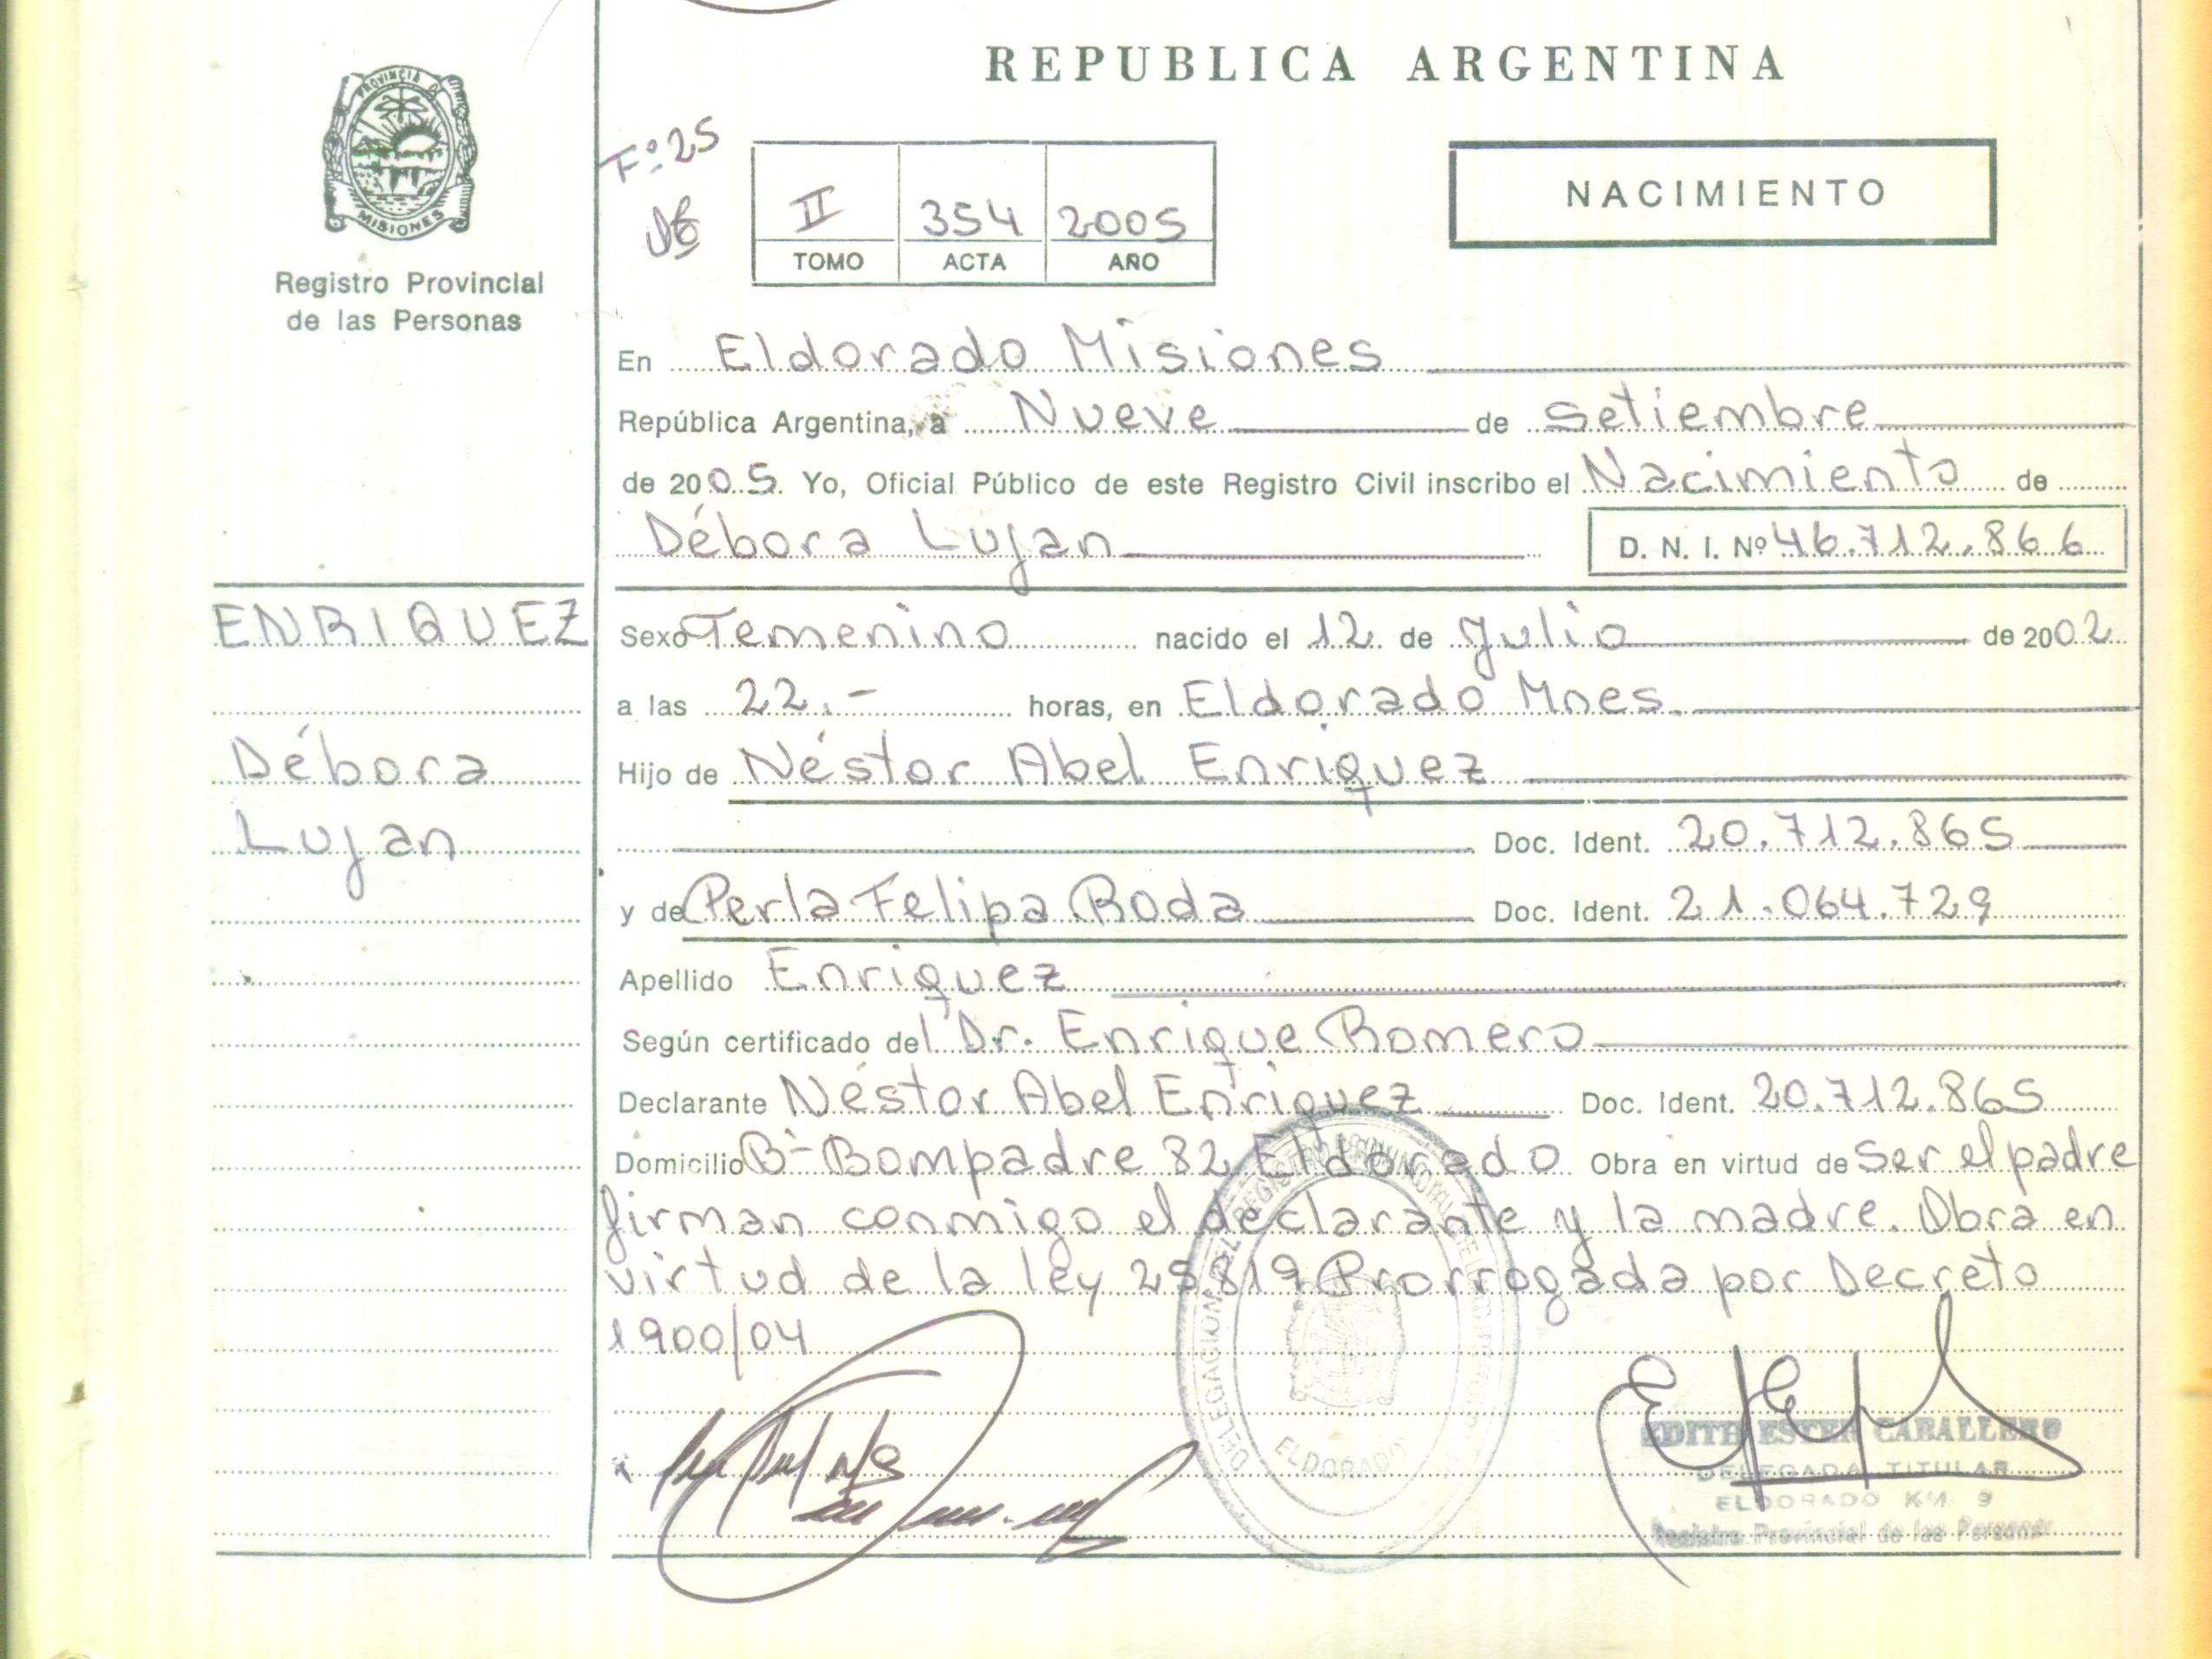 REPUBLICA ARGENTINA
PROVINCIA DE
MISIONES
Registro Provincial
de las Personas
Fº 25
II 354 2005
TOMO ACTA AÑO
NACIMIENTO
En Eldorado Misiones
República Argentina, a Nueve de setiembre
de 2005. Yo, Oficial Público de este Registro Civil inscribo el Nacimiento de
Débora Lujan D. N. I. Nº 46.712.866
ENRIQUEZ
Débora
Lujan
Sexo Femenino nacido el 12 de Julio de 2002
a las 22.- horas, en Eldorado Mnes.
Hijo de Néstor Abel Enriquez
Doc. Ident. 20.712.865
y de Perla Felipa Roda Doc. Ident. 21.064.729
Apellido Enriquez
Según certificado del Dr. Enrique Romero
Declarante Néstor Abel Enriquez Doc. Ident. 20.712.865
Domicilio Bº Bompadre 82 Eldorado Obra en virtud de Ser el padre
firman conmigo el declarante y la madre. Obra en
virtud de la ley 25819 Prorrogada por Decreto
1900/04
DELEGACION DEL REGISTRO PROVINCIAL DE LAS PERSONAS
ELDORADO
EDITH ESTER CABALLERO
DELEGADA TITULAR
ELDORADO KM 9
Registro Provincial de las Personas